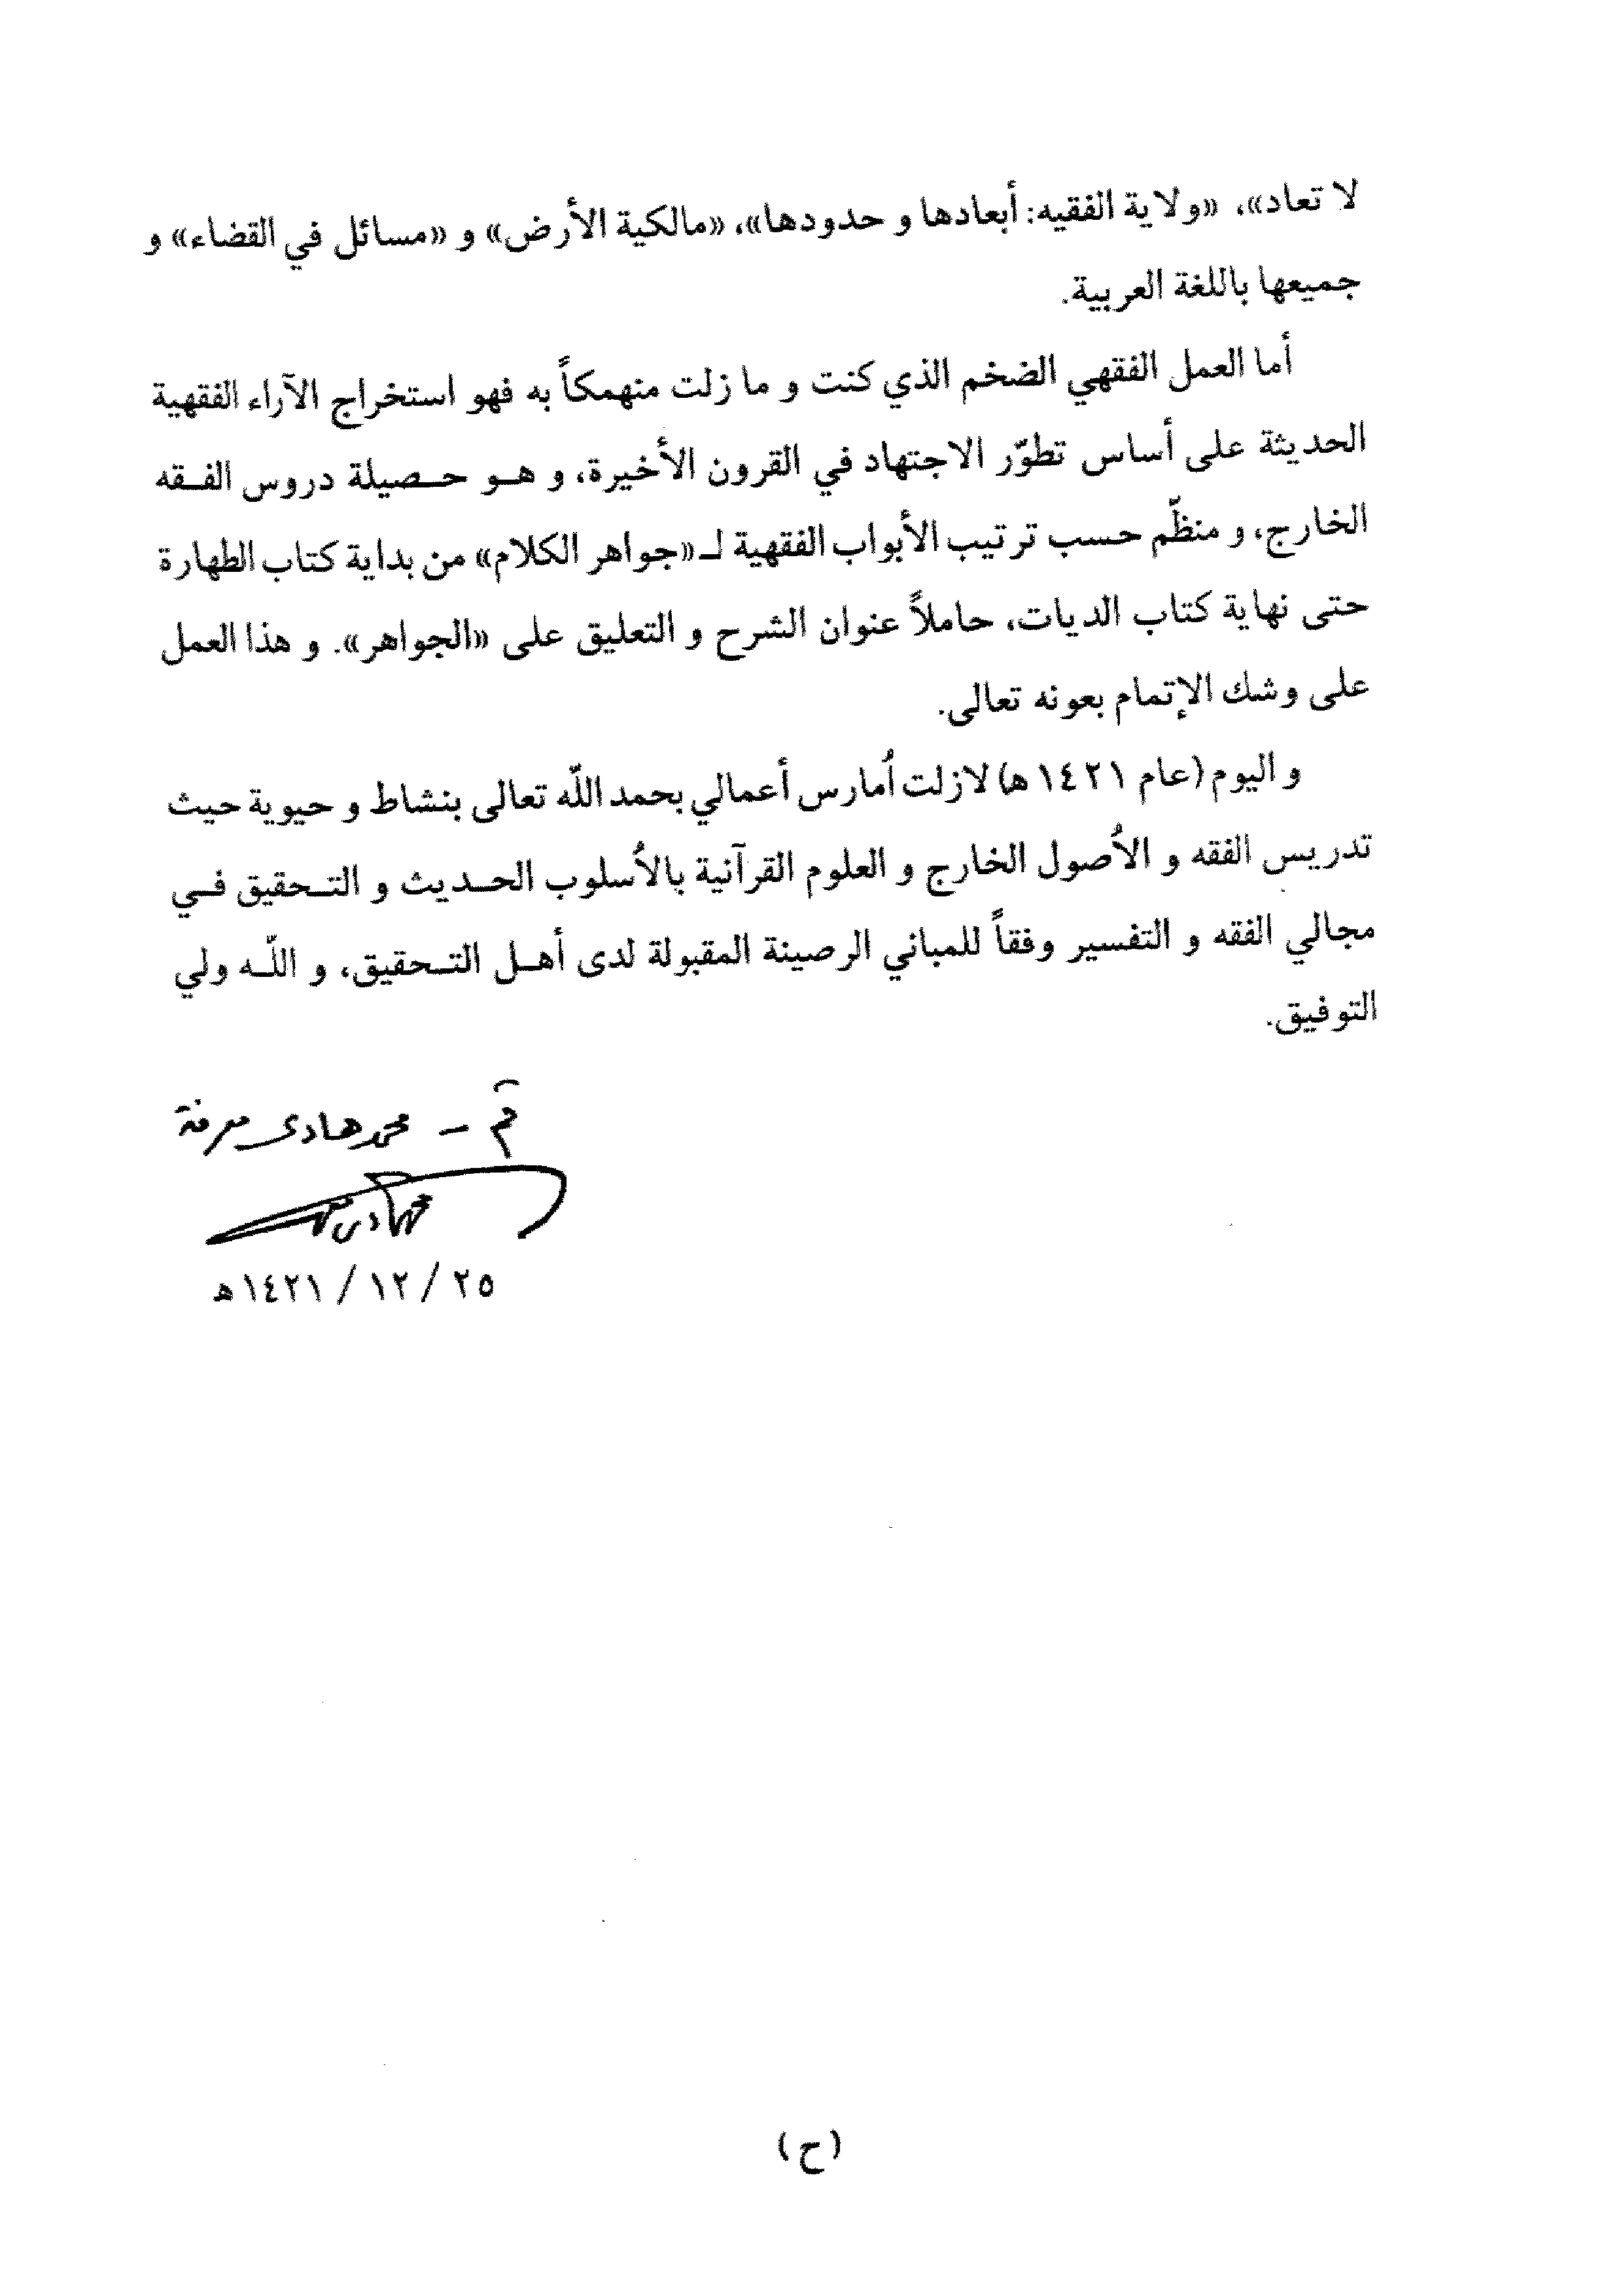 لا تعاد»، «ولاية الفقيه: أبعادها و حدودها»، «مالكية الأرض» و «مسائل في القضاء» و
جميعها باللغة العربية.
أما العمل الفقهي الضخم الذي كنت و ما زلت منهمكاً به فهو استخراج الآراء الفقهية
الحديثة على أساس تطوّر الاجتهاد في القرون الأخيرة، و هـو حـصيلة دروس الفـقه
الخارج، و منظّم حسب ترتيب الأبواب الفقهية لـ «جواهر الكلام» من بداية كتاب الطهارة
حتى نهاية كتاب الديات، حاملاً عنوان الشرح و التعليق على «الجواهر». و هذا العمل
على وشك الإتمام بعونه تعالى.
و اليوم (عام ١٤٢١ هـ) لازلت اُمارس أعمالي بحمد اللّه تعالى بنشاط و حيوية حيث
تدريس الفقه و الاُصول الخارج و العلوم القرآنية بالاُسلوب الحـديث و التـحقيق فـي
مجالي الفقه و التفسير وفقاً للمباني الرصينة المقبولة لدى أهـل التـحقيق، و اللّـه ولي
التوفيق.
قم - محمد هادى معرفة
٢٥ / ١٢ / ١٤٢١ هـ
(ح)